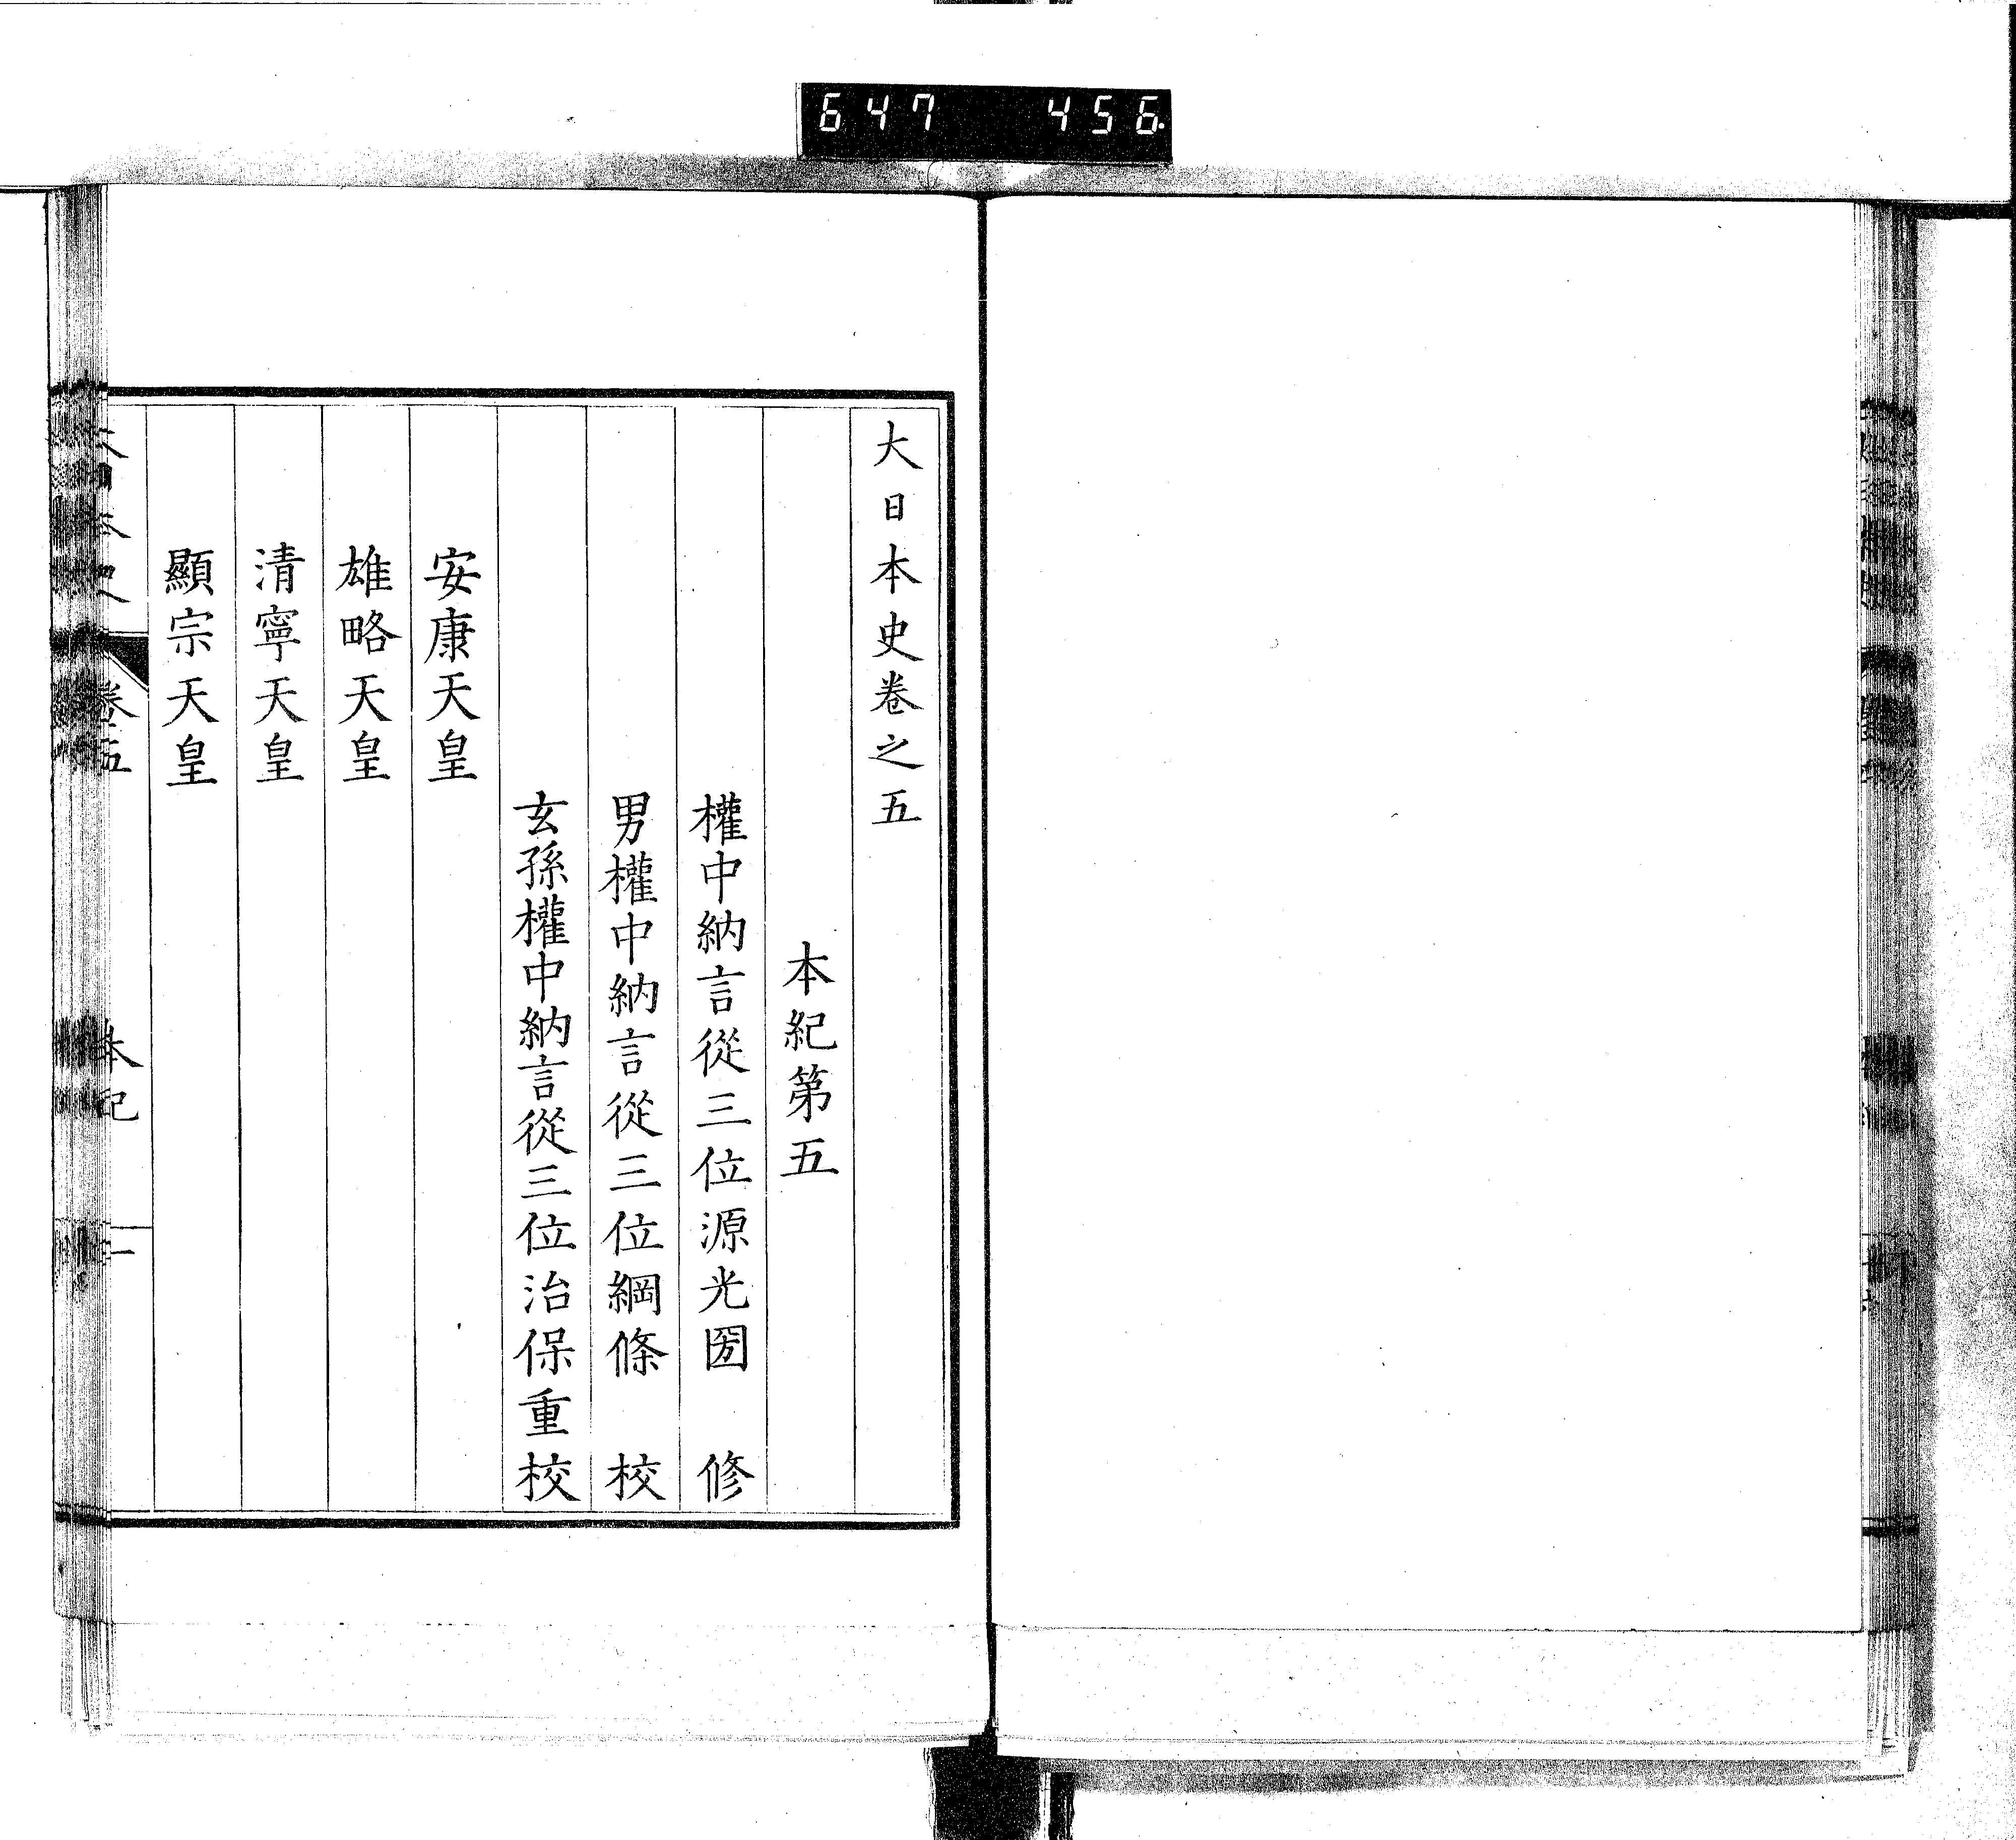 647 456
大日本史卷之五
本紀第五
權中納言從三位源光圀 修
男權中納言從三位綱條 校
玄孫權中納言從三位治保重校
安康天皇
雄略天皇
清寧天皇
顯宗天皇
大日本史 卷五 本紀 一